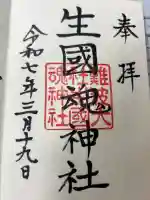 奉拝
生國魂神社
難波大
社生國
魂神社
令和七年三月十九日